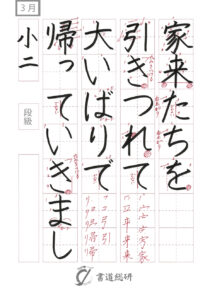 家来たちを
引きつれて
大いばりで
帰っていきまし
3月
小二
段級
書道総研